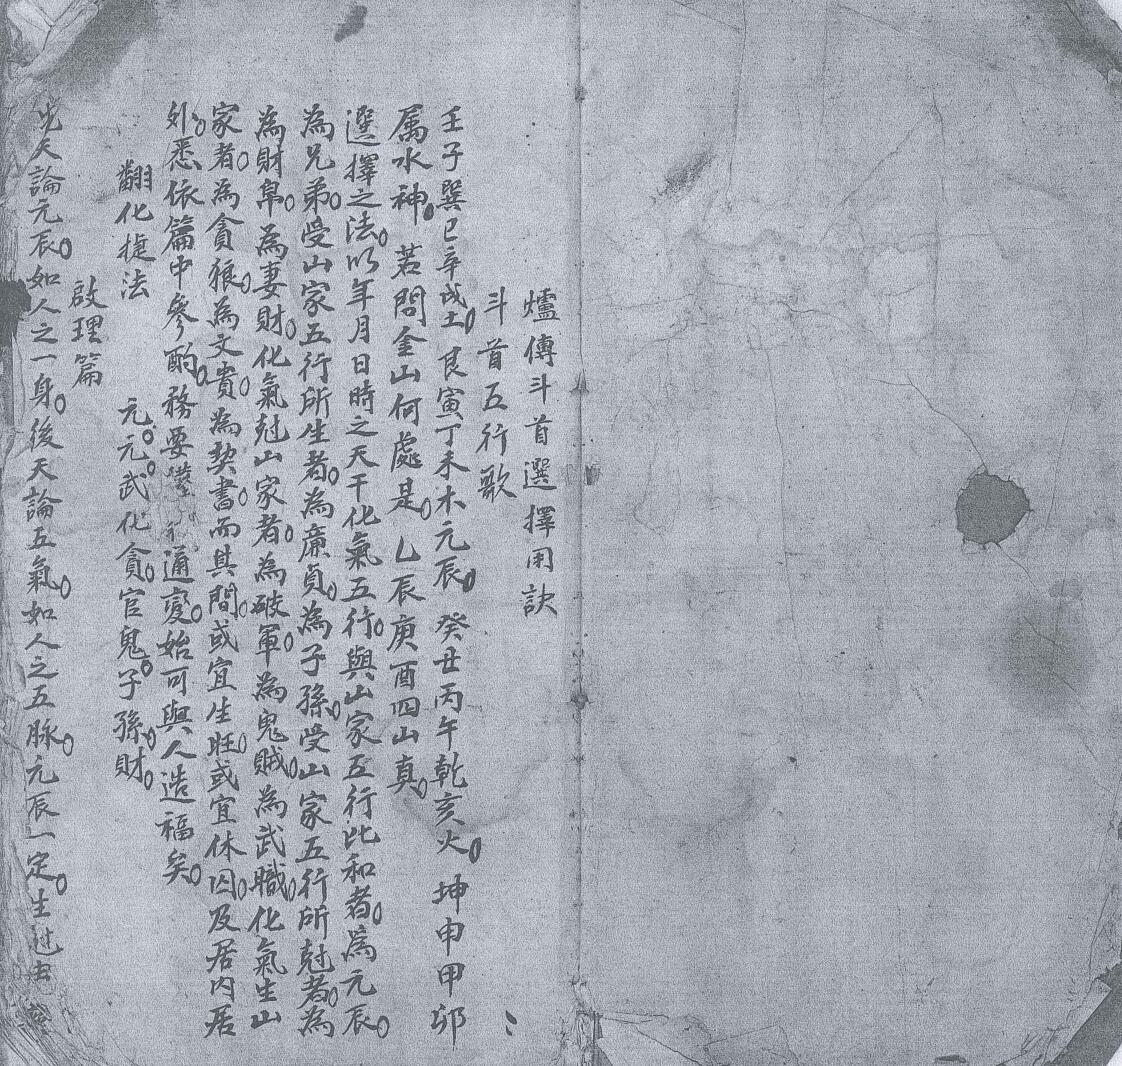 爐傳斗首選擇用訣
斗首五行歌
壬子巽巳辛戌土。艮寅丁未木元辰。癸丑丙午乾亥火。坤申甲卯
属水神。若問金山何處是。乙辰庚酉四山真。
選擇之法。以年月日時之天干化氣五行。與山家五行比和者。為元辰。
為兄弟。受山家五行所生者。為廉貞。為子孫。受山家五行所尅者。為
為財帛。為妻財。化氣尅山家者。為破軍。為鬼賊。為武職。化氣生山
家者。為貪狼。為文貴。為契書。而其間。或宜生旺。或宜休囚。及居內居
外。悉依篇中參酌。務要通變。始可與人造福矣。
翻化捷法 元。元。武化貪。官鬼。子孫。財。
啟理篇
先天論元辰。如人之一身。後天論五氣。如人之五脉。元辰一定。生过去